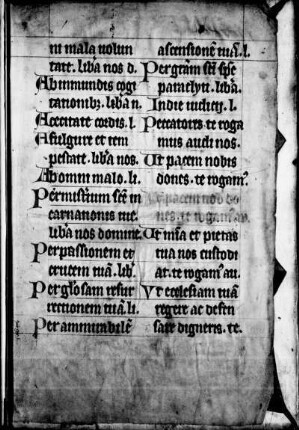 ni mala uolun
tate. liba nos d.
Ab inmundis cogi
tationibz. liba n.
A cecitate cordis. l.
A fulgure et tem
pestate. liba nos.
Ab omni malo. li.
Per misterium sce in
carnationis tue.
liba nos domine.
Per passionem et
crucem tuā. lib
Per glosam resur
rectionem tuā. li
Per ammirabilē
ascensionē tuā. l.
Per gram sci spc
paraclyti. liba.
In die iudicij. l.
Peccatores te roga
mus audi nos.
Ut pacem nobis
dones. te rogam
Ut pacem nob do
nes. te rogam
Ut mīa et pietas
tua nos custodi
at. te rogam au.
Ut ecclesiam tuā
regere ac defen
sare digneris. te.